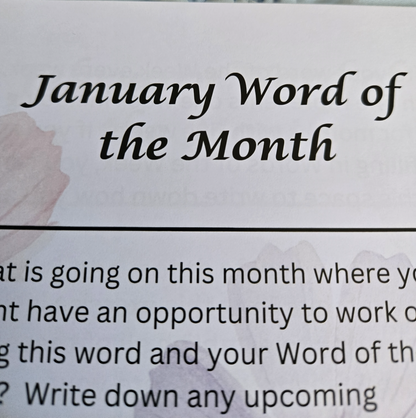 January Word of
the Month
at is going on this month where yo
nt have an opportunity to work o
g this word and your Word of th
? Write down any upcoming